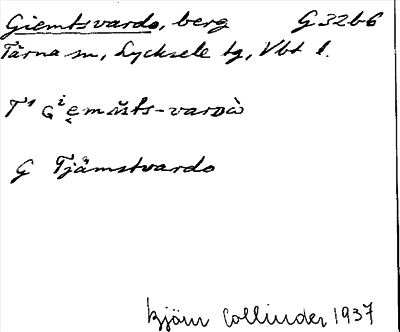 Giemtsvardo, berg G 32b6
Tärna sn, Lycksele tg, Vbt l.
G Tjämstvardo
Björn Collinder 1937